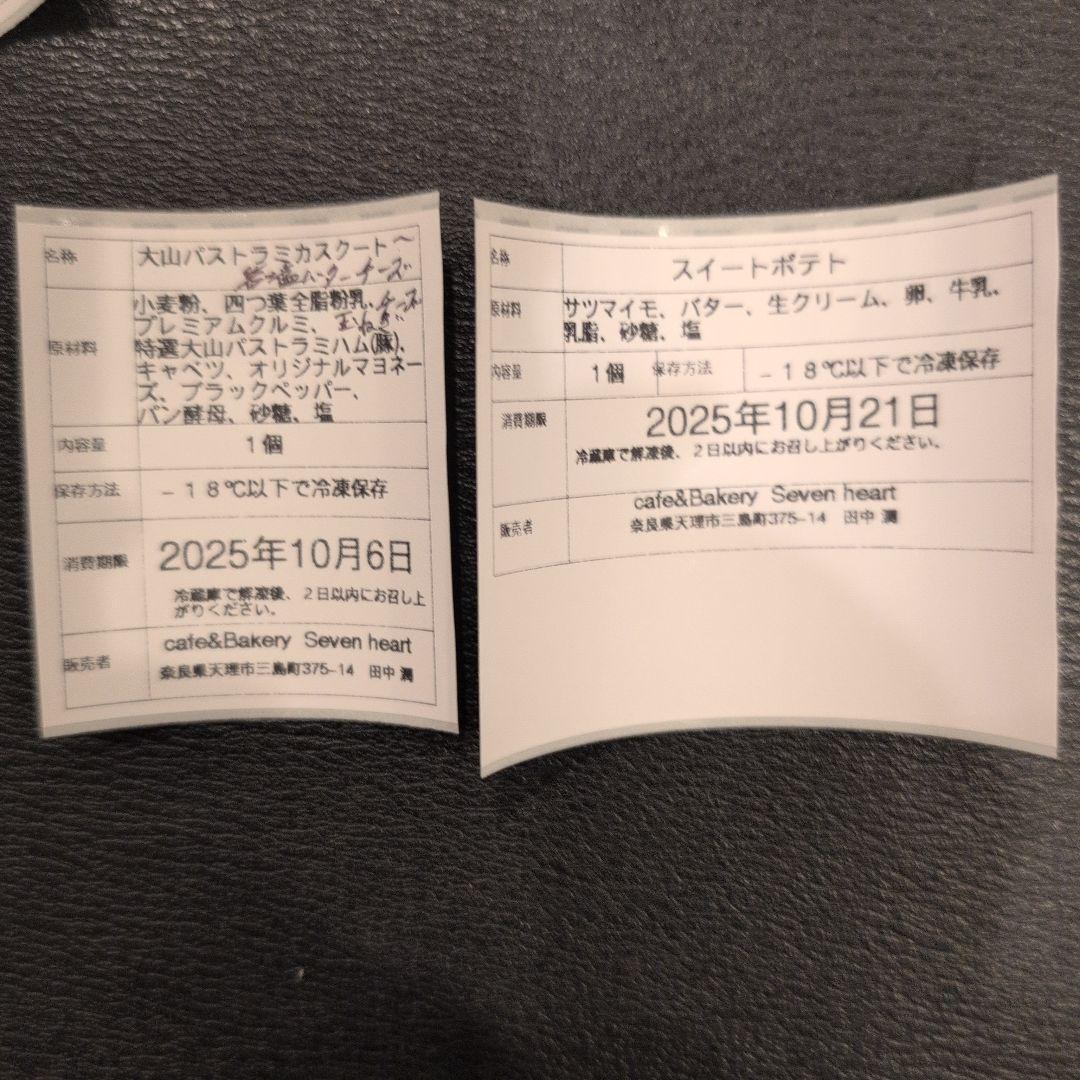 名称
大山パストラミカスクート
バターチーズ
原材料
小麦粉、四つ葉全脂粉乳、チーズ
プレミアムクルミ、玉ねぎ
特選大山パストラミハム(豚)、
キャベツ、オリジナルマヨネー
ズ、ブラックペッパー、
パン酵母、砂糖、塩
内容量
1個
保存方法
－18℃以下で冷凍保存
消費期限
2025年10月6日
冷蔵庫で解凍後、2日以内にお召し上
がりください。
販売者
cafe&Bakery Seven heart
奈良県天理市三島町375-14 田中 潤
名称
スイートポテト
原材料
サツマイモ、バター、生クリーム、卵、牛乳、
乳脂、砂糖、塩
内容量
1個
保存方法
－18℃以下で冷凍保存
消費期限
2025年10月21日
冷蔵庫で解凍後、2日以内にお召し上がりください。
販売者
cafe&Bakery Seven heart
奈良県天理市三島町375-14 田中 潤